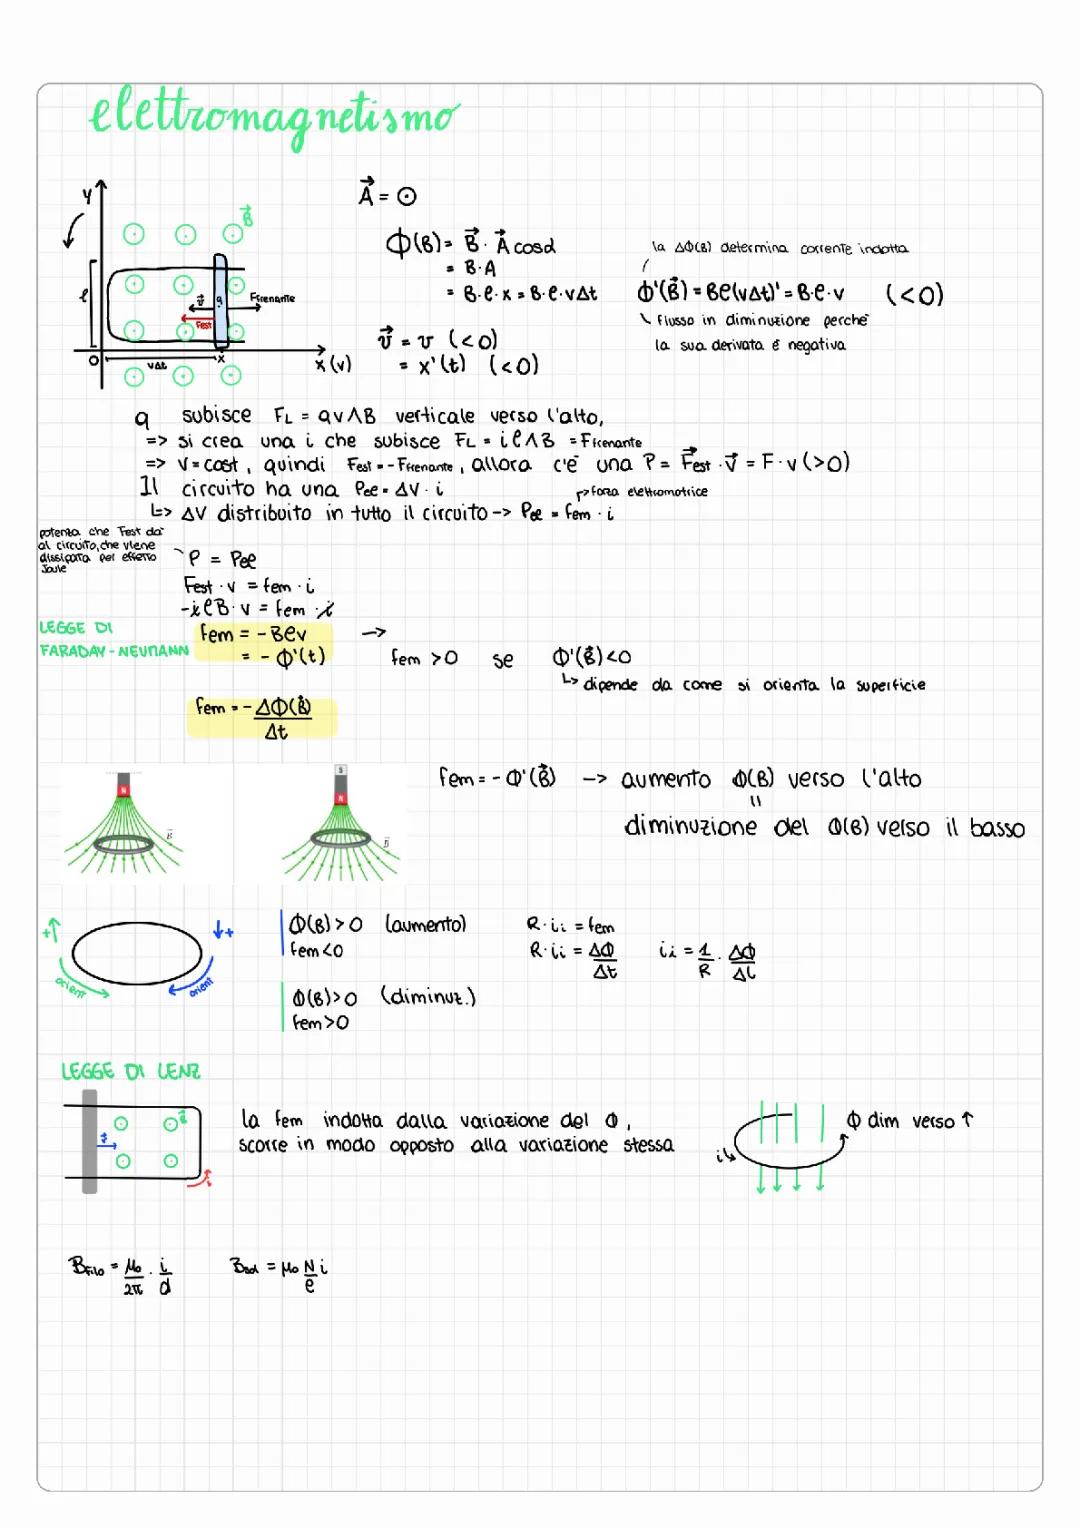 elettromagnetismo
y
B⃗
A⃗ = ⊙
ℓ
v⃗
q
Ffrenante
Fest
O
vΔt
x
x (v)
Φ(B) = B⃗ · A⃗ cosα
= B·A
= B·ℓ·x = B·ℓ·vΔt
la ΔΦ(B) determina corrente indotta
Φ'(B⃗) = Bℓ(vΔt)' = B·ℓ·v (<0)
flusso in diminuzione perchè
la sua derivata è negativa
v⃗ = v (<0)
= x'(t) (<0)
q subisce FL = qv∧B verticale verso l'alto,
=> si crea una i che subisce FL = iℓ∧B = Ffrenante
=> v = cost, quindi Fest = -Ffrenante, allora c'è una P = F⃗est · v⃗ = F·v (>0)
Il circuito ha una Pee = ΔV · i
forza elettromotrice
↳> ΔV distribuito in tutto il circuito -> Pee = fem · i
potenza che Fest dà
al circuito, che viene
dissipata per effetto
Joule
P = Pee
Fest · v = fem · i
-iℓB·v = fem · i
LEGGE DI
FARADAY-NEUMANN
fem = -Bℓv ->
= -Φ'(t)
fem >0 se Φ'(B⃗)<0
↳> dipende da come si orienta la superficie
fem = -ΔΦ(B⃗)
Δt
N
B⃗
S
N
B⃗
fem = -Φ'(B⃗) -> aumento Φ(B) verso l'alto
=
diminuzione del Φ(B) verso il basso
+↑
↓+
orient
orient
Φ(B)>0 (aumento)
fem<0
Φ(B)>0 (diminuz.)
fem>0
R·ii = fem
R·ii = ΔΦ
Δt
ii = 1/R · ΔΦ/Δt
LEGGE DI LENZ
B⃗
v⃗
i
la fem indotta dalla variazione del Φ,
scorre in modo opposto alla variazione stessa
i
Φ dim verso ↑
Bfilo = μ₀/2π · i/d
Bsol = μ₀ N/ℓ i